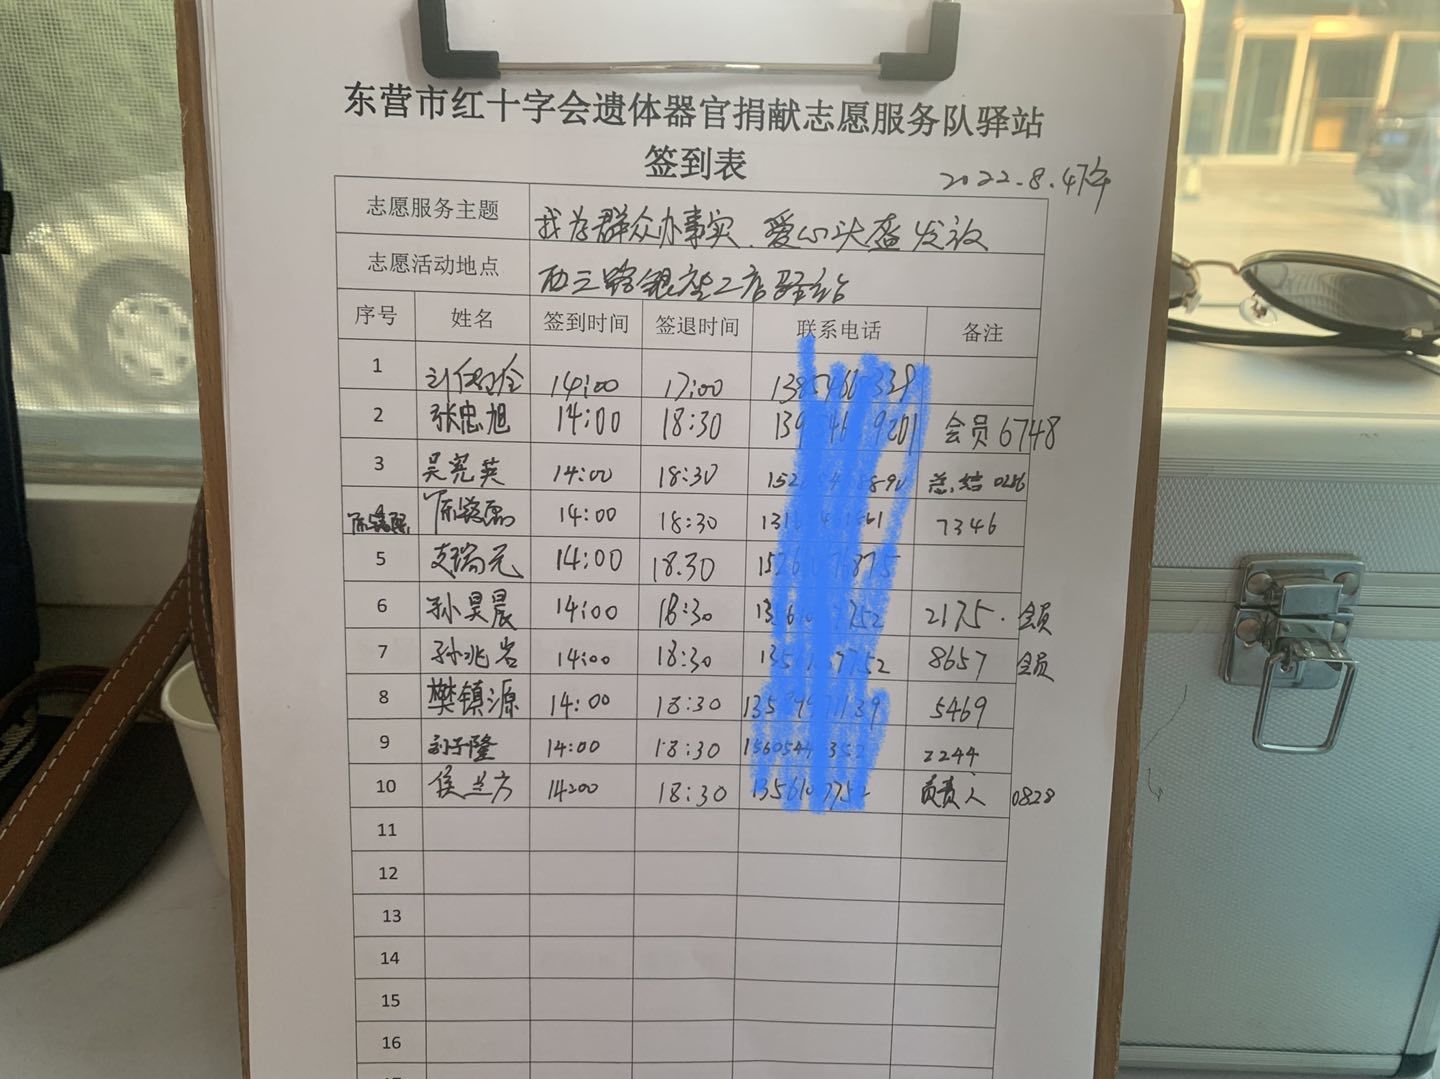 东营市红十字会遗体器官捐献志愿服务队驿站
签到表
2022.8.4下午
志愿服务主题 我为群众办事实、爱心头盔发放
志愿活动地点 西三路银座二店驿站
序号 姓名 签到时间 签退时间 联系电话 备注
1 14:00 17:00
2 张忠旭 14:00 18:30 会员6748
3 吴宪英 14:00 18:30 总结0286
14:00 18:30 7346
5 支瑞元 14:00 18.30
6 孙昊晨 14:00 18:30 2175. 会员
7 孙兆岩 14:00 18:30 8657 会员
8 樊镇源 14:00 18:30 5469
9 刘子隆 14:00 18:30 2244
10 侯兰方 14:00 18:30 负责人 0828
11
12
13
14
15
16